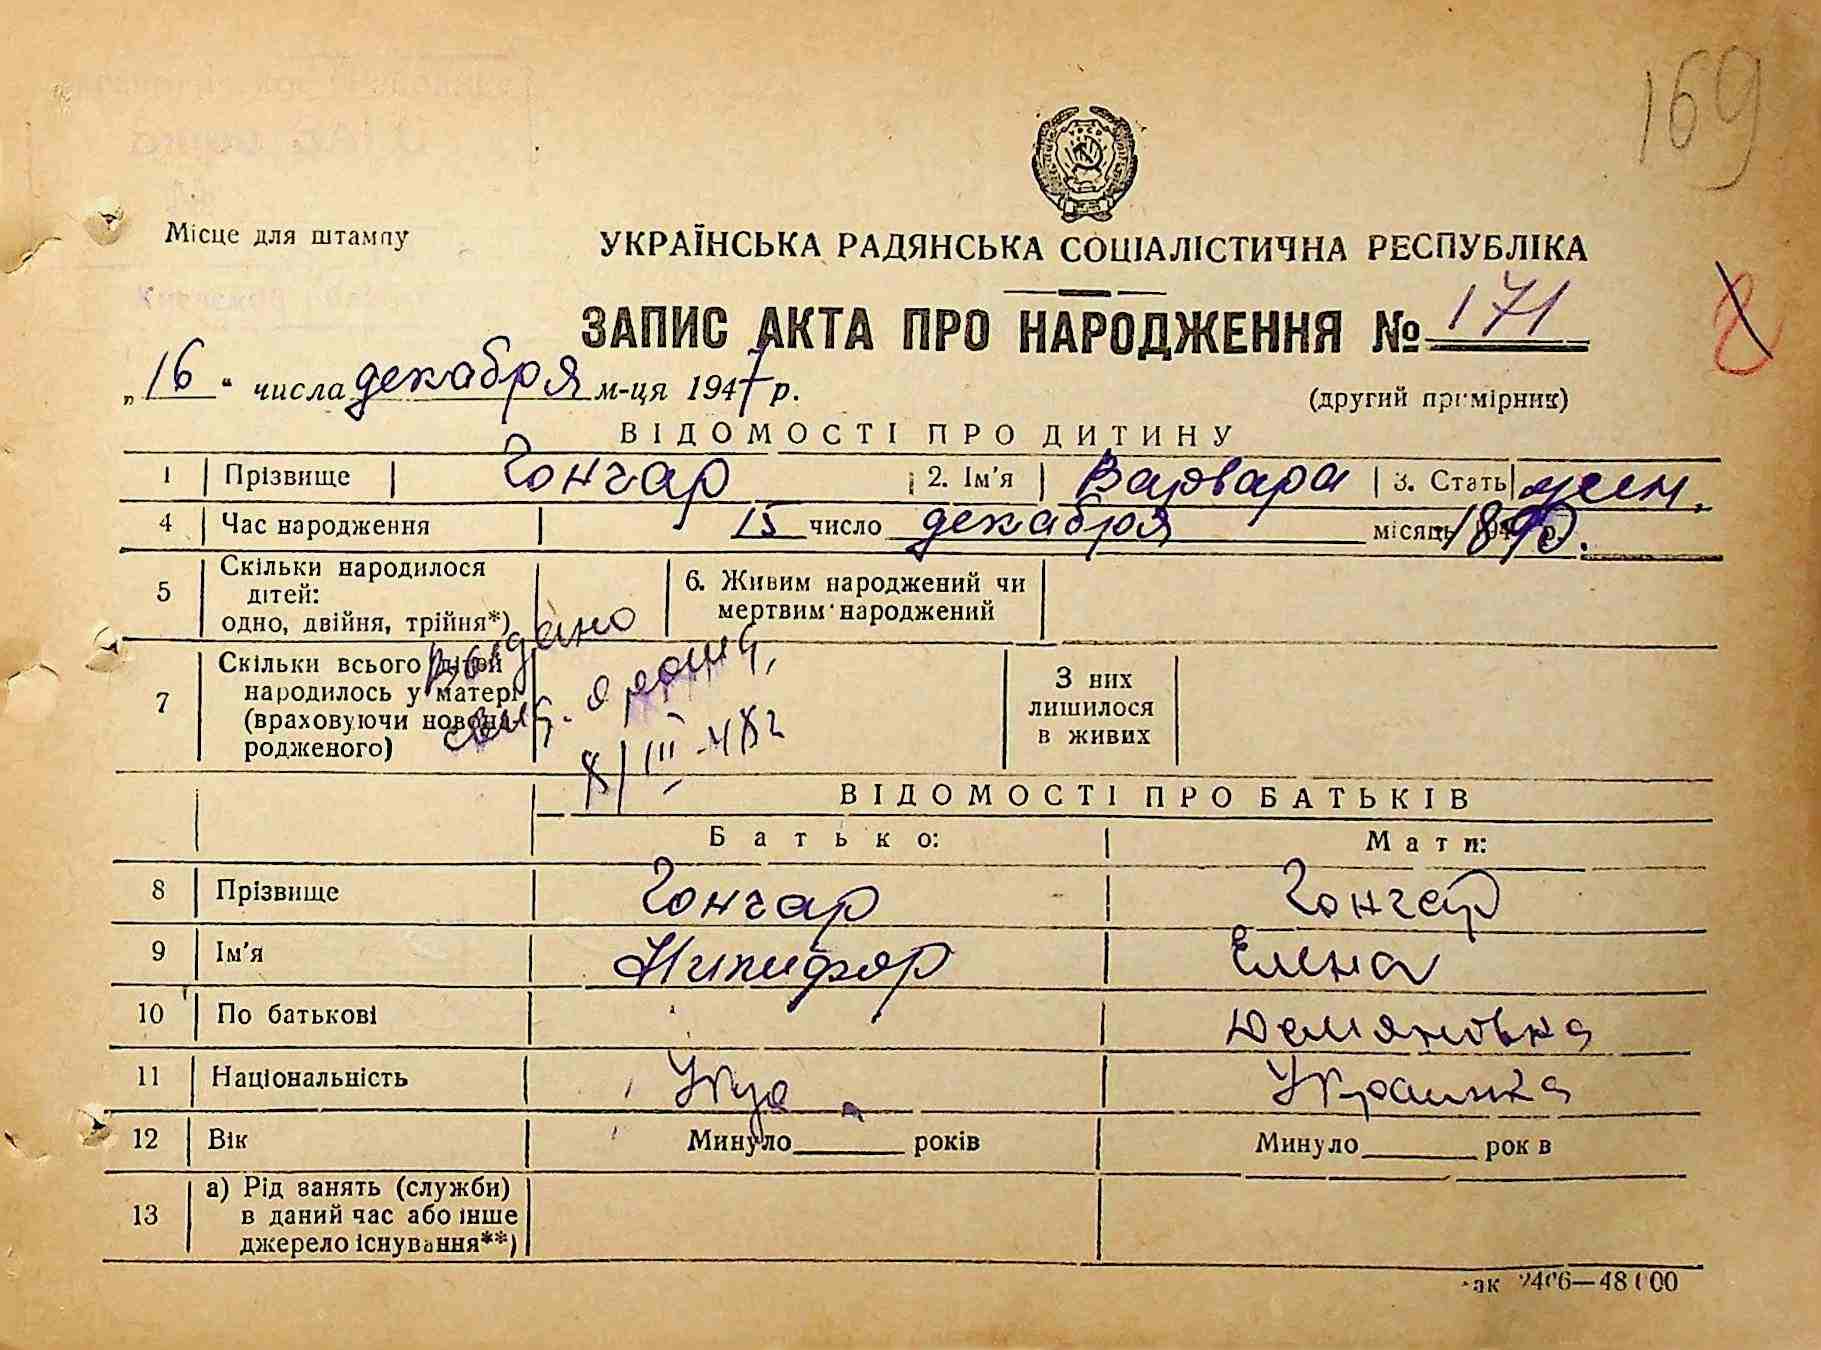 169
Місце для штампу
УКРАЇНСЬКА РАДЯНСЬКА СОЦІАЛІСТИЧНА РЕСПУБЛІКА
ЗАПИС АКТА ПРО НАРОДЖЕННЯ № 171
„16“ числа декабря м-ця 1947 р.
(другий примірник)
ВІДОМОСТІ ПРО ДИТИНУ
1 Прізвище Гончар 2. Ім'я Варвара 3. Стать жен.
4 Час народження 15 число декабря місяць 1890.
5 Скільки народилося дітей: одно, двійня, трійня*) 6. Живим народжений чи мертвим народжений
7 Скільки всього дітей народилось у матері (враховуючи новонародженого) З них лишилося в живих
Выдано
8/III-48г
ВІДОМОСТІ ПРО БАТЬКІВ
Батько: Мати:
8 Прізвище Гончар Гончар
9 Ім'я Никифор Елена
10 По батькові Демяновна
11 Національність Украинка
12 Вік Минуло років Минуло рок в
13 а) Рід занять (служби) в даний час або інше джерело існування**)